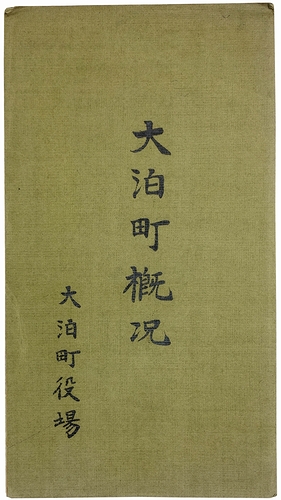 大泊町概况
大泊町役場